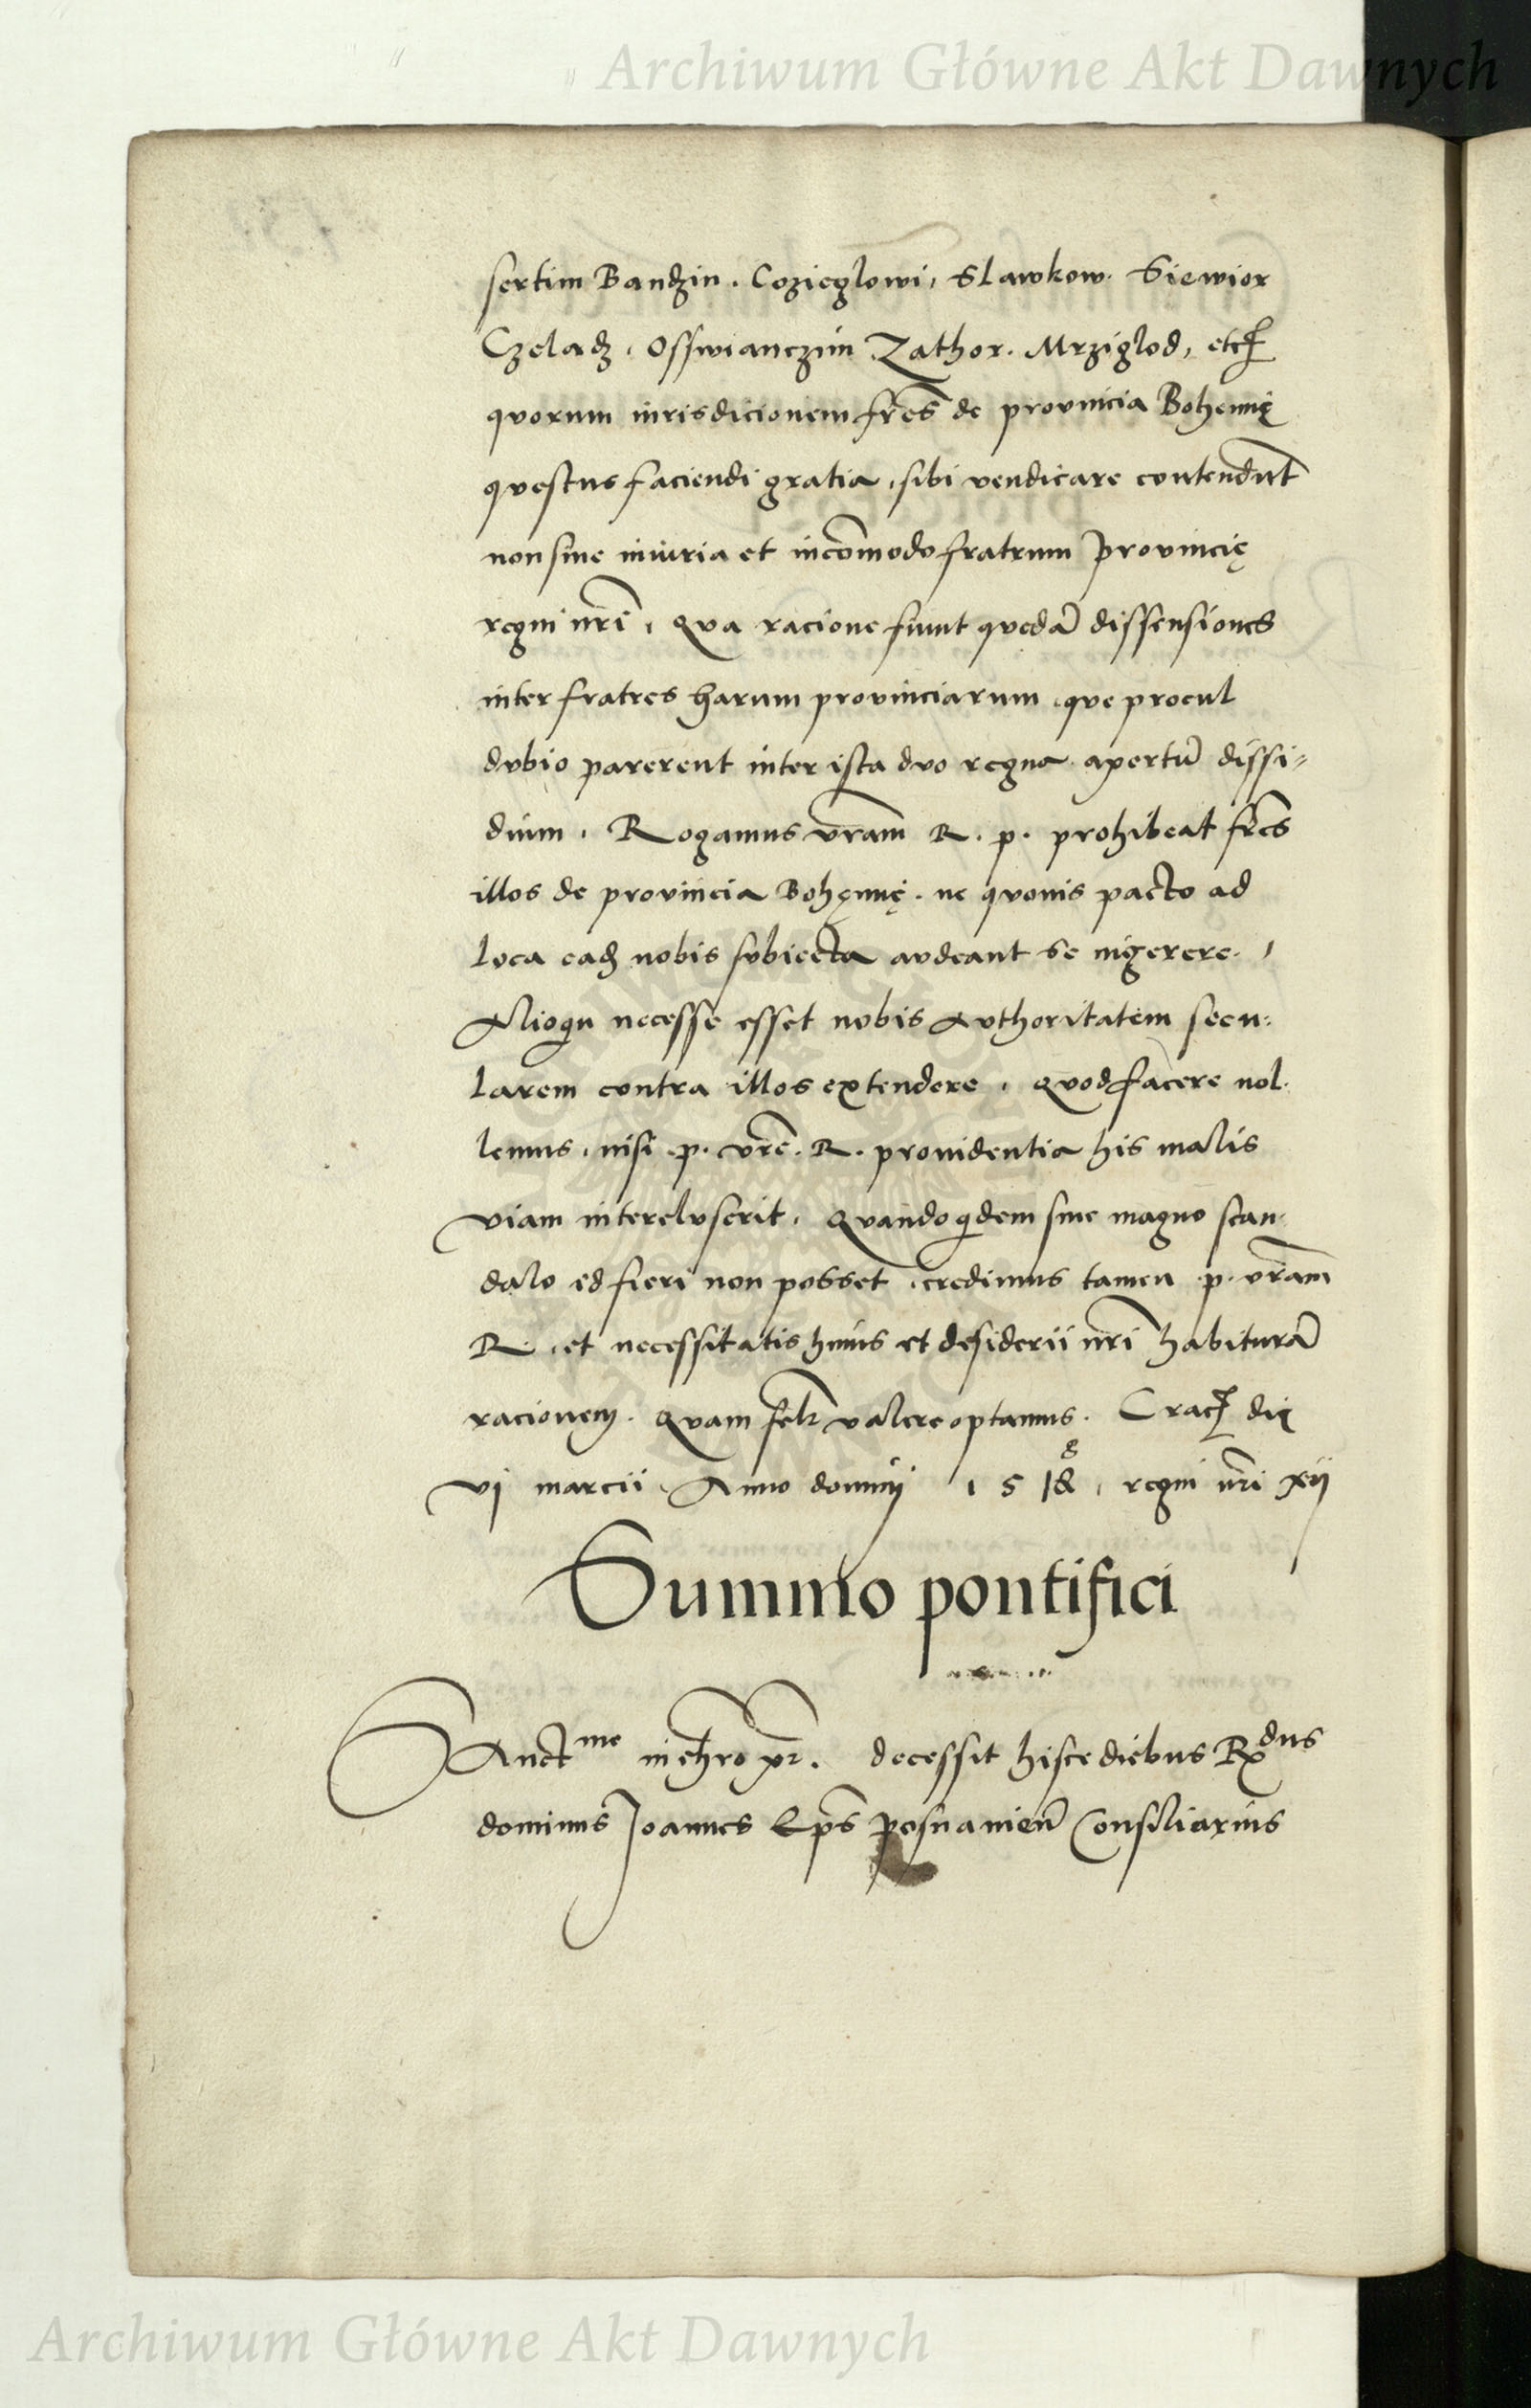 Archiwum Główne Akt Dawnych
sertim Bandzin. Cozieglowi, Slawkow. Siewior
Czeladz, Osswianczim Zathor. Mrziglod, etc
quorum iurisdicionem fr̃es de prouincia Bohemię
questus faciendi gratia, sibi vendicare contendũt
non sine iniuria et incõmodo fratrum prouincię
regni nr̃i, Qua racione fiunt quedã dissensiones
inter fratres harum prouinciarum, que procul
dubio parerent inter ista duo regna apertũ dissi-
dium, Rogamus vr̃am R. p. prohibeat fr̃es
illos de prouincia Bohęmię. ne quouis pacto ad
loca eadẽ nobis subiecta audeant se ingerere.
Alioqui necesse esset nobis Authoritatem secu:
larem contra illos extendere, Quod facere nol.
lemus, nisi p. vr̃e. R. prouidentia his malis
viam intercluserit, Quandoqdem sine magno scan.
dalo id fieri non posset, credimus tamen p. vr̃am
R. et necessitatis huius et desiderii nr̃i habiturã
racionem. Quam felr̃ valere optamus. Crac dię
vj marcii Anno dominj 1518 8, regni nr̃i xij
Summo pontifici
Sanctme in chro pr̃. decessit hisce diebus Rdus
dominus Joannes Ep̃s posnanieñ Consiliarius
Archiwum Główne Akt Dawnych